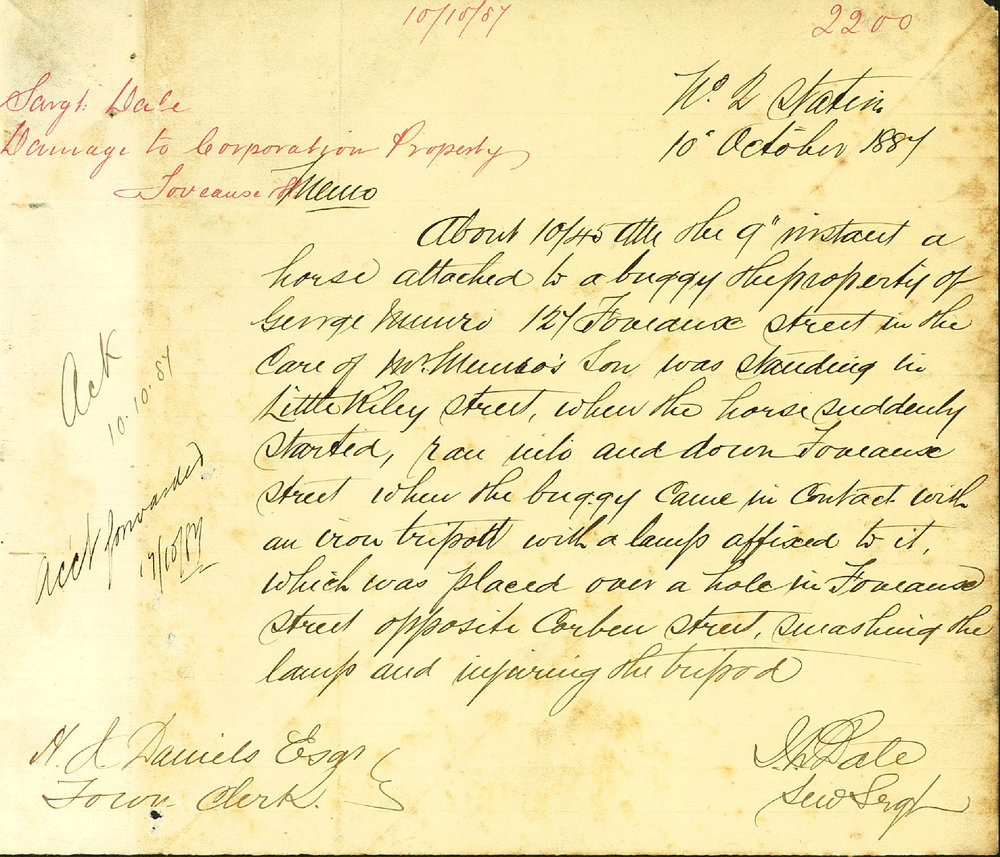 10/10/87
2200
Sargt. Dale
Damage to Corporation Property
Foveaux St
No. 2 Station
10" October 1887
Memo
About 10/45 PM the 9" instant a
horse attached to a buggy the property of
George Munro 127 Foveaux street in the
Care of Mr. Munro's Son was standing in
Little Riley street, when the horse suddenly
started, ran into and down Foveaux
street when the buggy came in contact with
an iron tripott with a lamp affixed to it,
which was placed over a hole in Foveaux
street opposite Corben street, smashing the
lamp and injuring the tripod
Ack
10.10.87
Acct forwarded
17/10/87
Daniels Esqr
Town Clerk.
Dale
Sen Sergt